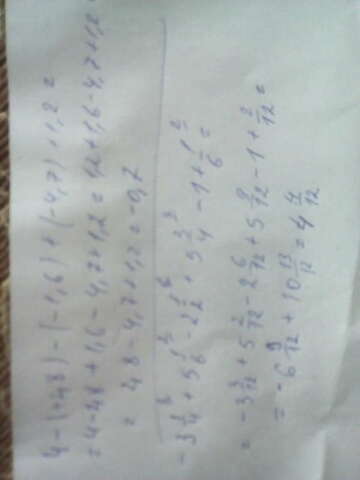 4-(+2,8)-(-1,6)+(-4,7)+1,2=
=4-2,8+1,6-4,7+1,2=1,2+1,6-4,7+1,2=
=2,8-4,7+1,2=-0,7
-3 1/4 + 5 1/6 - 2 1/2 + 5 3/4 - 1 + 1/6 =
= -3 3/12 + 5 2/12 - 2 6/12 + 5 9/12 - 1 + 2/12 =
= -6 9/12 + 10 13/12 = 4 4/12